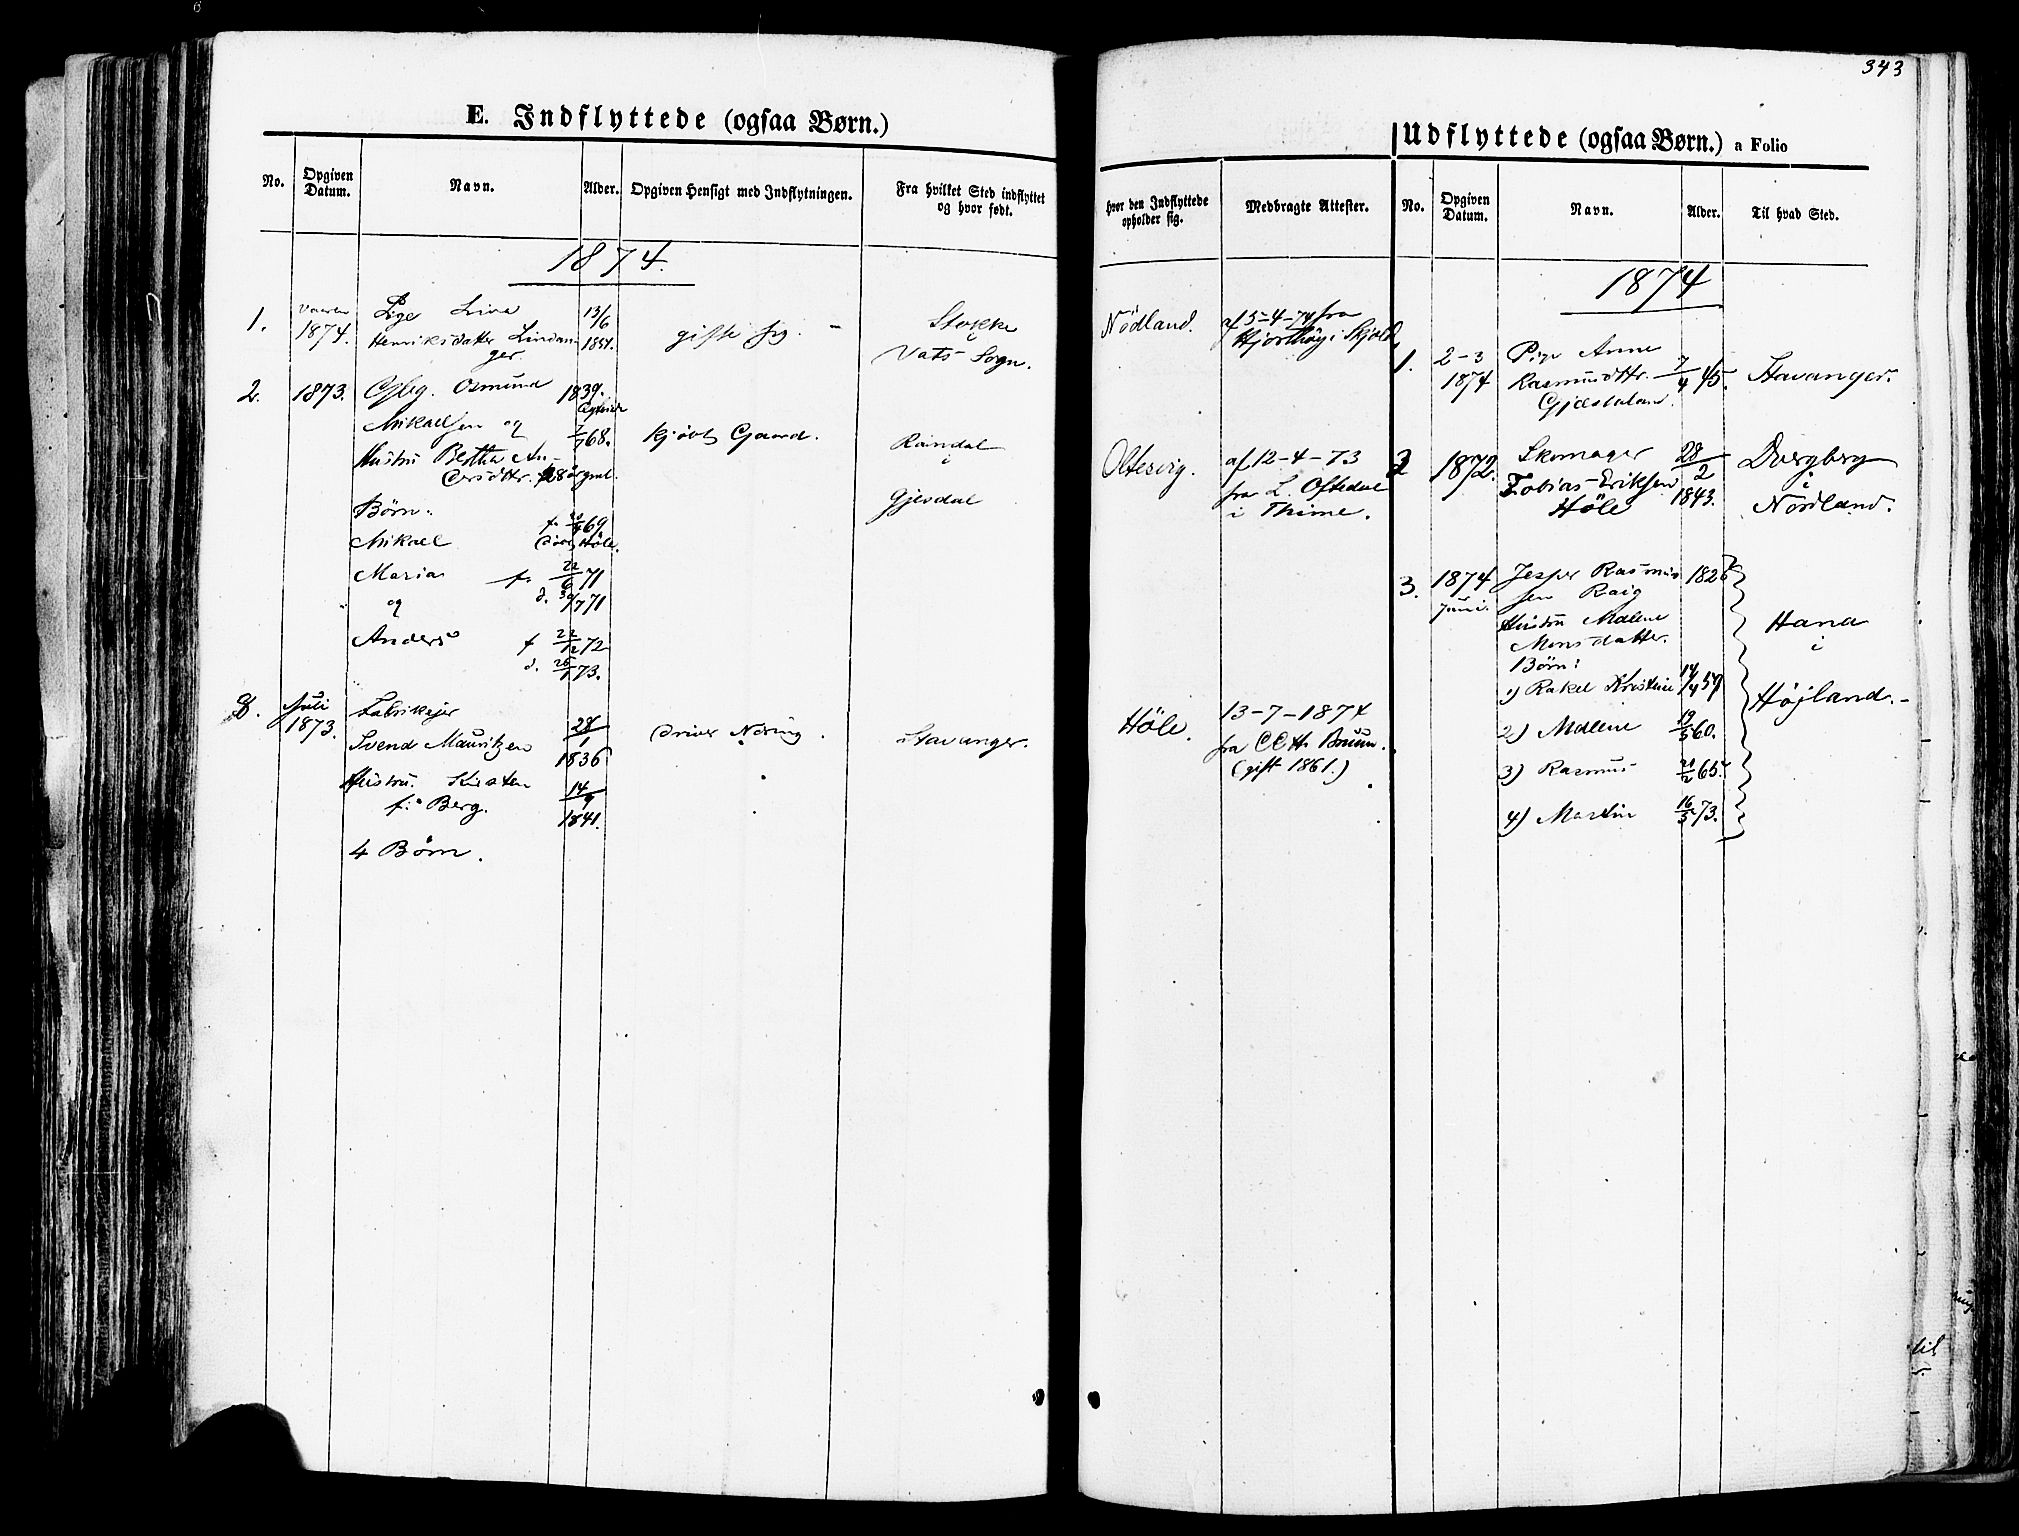 343
E. Indflyttede (ogsaa Børn.)
No.
Opgiven Datum.
Navn.
Alder.
Opgiven Hensigt med Indflytningen.
Fra hvilket Sted indflyttet og hvor født.
Hvor den Indflyttede opholder sig.
Medbragte Attester.
1874.
1.
1874.
Pige Lina
Henriksdatter Lindan-
ger
13/6
1851.
gifte sig. -
Stokke
i
Vats Sogn.
Nödland.
af 5-4-74 fra
Hjorthöy i Skjold
2.
1873.
Gbrg. Osmund
Mikaelsen og
Hustru Bertha An-
dersdttr. 28 år gml.
1839.
68.
kjøbt Gaard.
Randal
i
Gjesdal
Oltesvig.
af 12-4-73
fra L. Oftedal
i Thime.
Börn:
Mikael
f. 69
döbt Höle.
Maria f. 22/6 71
og d. 30/7 71
Anders f 22/12 72
d. 73.
3.
Juli
1873.
Fabrikejer
Svend Mauritzen
28/1
1836
Hustru Kirsten
f: Berg.
14/9
1841.
4 Börn.
driver Næring.
Stavanger.
Höle.
13-7-1874
fra CCH. Bruun.
(gift 1861.)
Udflyttede (ogsaa Børn.) a Folio
No.
Opgiven Datum.
Navn.
Alder.
Til hvad Sted.
1874
1.
2-3
1874
Pige Anne
Rasmusdttr.
7/4 45.
Stavanger.
2
1872.
Skomager
Tobias Eriksen
Höle
28/2
1843.
Dvergberg
i
Nordland.
3.
1874
Juni.
Jesper Rasmus
sen Raig
1826
Hustru Malene
Monsdatter.
Börn:
1) Rakel Kristine 14/4 57
2) Malene 19/5 60.
3) Rasmus 21/2 65.
4) Martin 16/5 73.
Hana
i
Höjland.
til